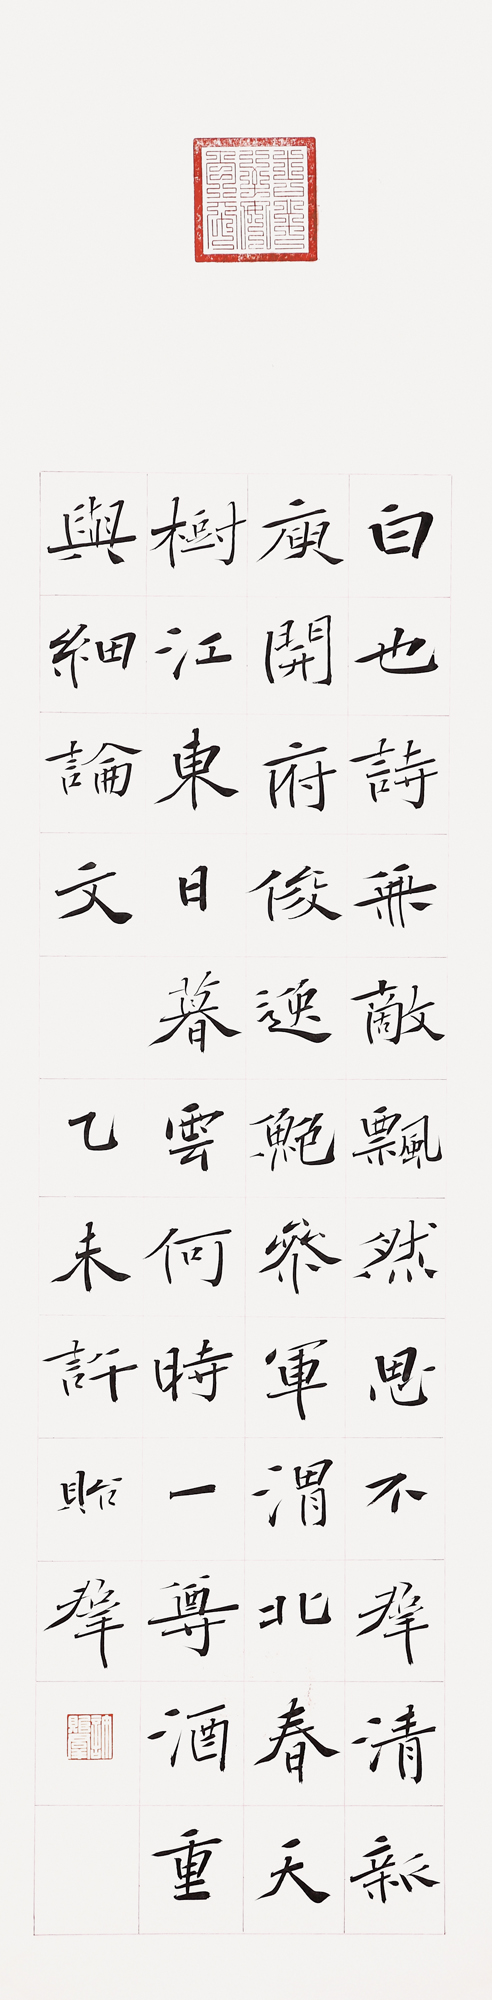 白也詩無敵飄然思不羣清新
庾開府俊逸鮑參軍渭北春天
樹江東日暮雲何時一尊酒重
與細論文 乙未許貽羣